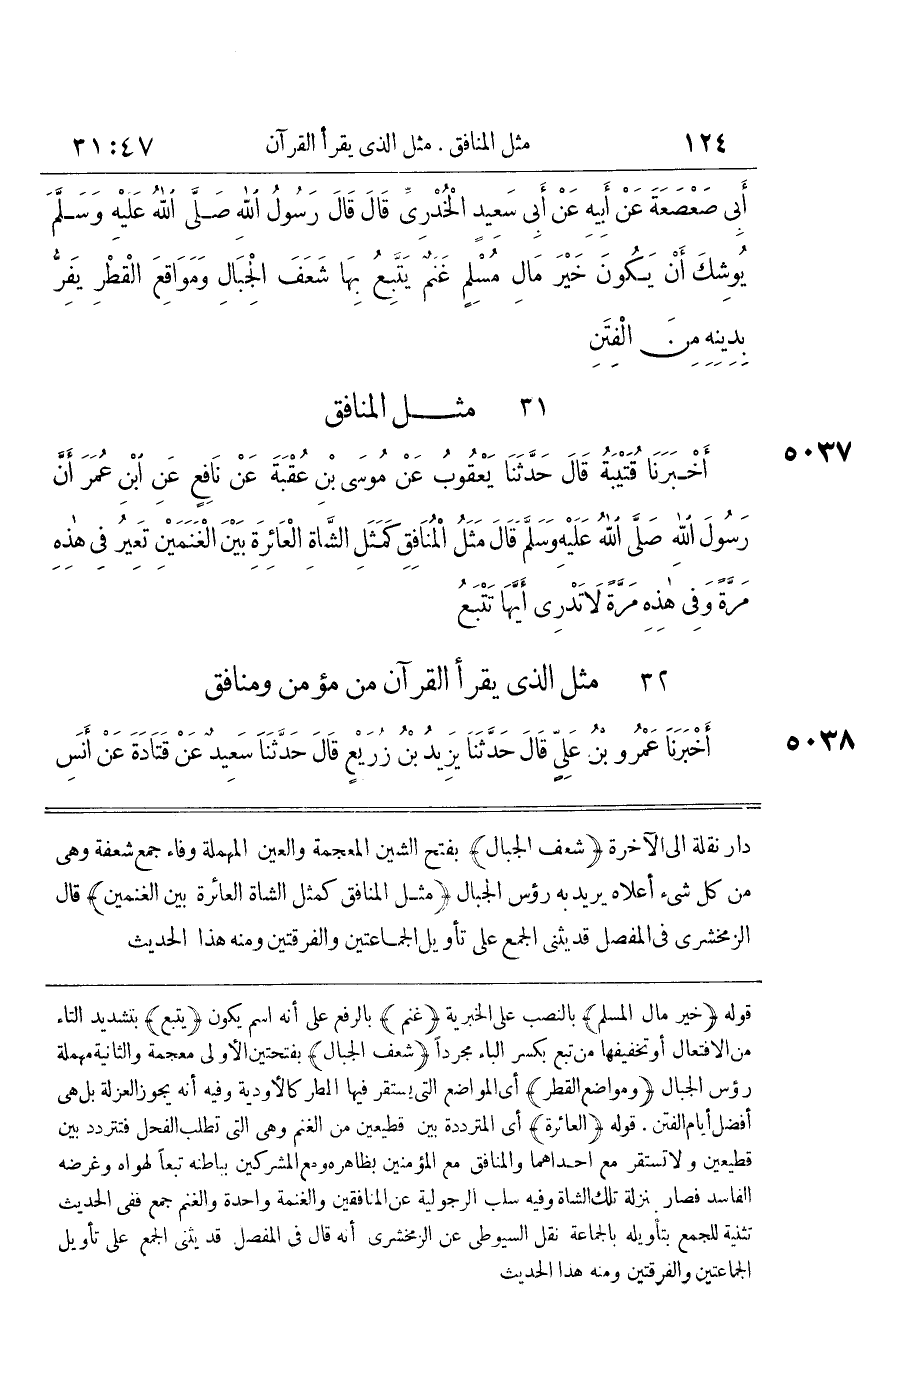 ١٢٤ مثل المنافق . مثل الذى يقرأ القرآن ٤٧:٣١
أَبِى صَعْصَعَةَ عَنْ أَبِيهِ عَنْ أَبِى سَعِيدٍ الْخُدْرِىِّ قَالَ قَالَ رَسُولُ اللهِ صَلَّى اللهُ عَلَيْهِ وَسَلَّمَ
يُوشِكُ أَنْ يَكُونَ خَيْرَ مَالِ مُسْلِمٍ غَنَمٌ يَتَّبِعُ بِهَا شَعَفَ الْجِبَالِ وَمَوَاقِعَ الْقَطْرِ يَفِرُّ
بِدِينِهِ مِنَ الْفِتَنِ
٣١ مثل المنافق
٥٠٣٧
أَخْبَرَنَا قُتَيْبَةُ قَالَ حَدَّثَنَا يَعْقُوبُ عَنْ مُوسَى بْنِ عُقْبَةَ عَنْ نَافِعٍ عَنِ ابْنِ عُمَرَ أَنَّ
رَسُولَ اللهِ صَلَّى اللهُ عَلَيْهِ وَسَلَّمَ قَالَ مَثَلُ الْمُنَافِقِ كَمَثَلِ الشَّاةِ الْعَائِرَةِ بَيْنَ الْغَنَمَيْنِ تَعِيرُ فِى هٰذِهِ
مَرَّةً وَفِى هٰذِهِ مَرَّةً لَاتَدْرِى أَيَّهَا تَتْبَعُ
٣٢ مثل الذى يقرأ القرآن من مؤمن ومنافق
٥٠٣٨
أَخْبَرَنَا عَمْرُو بْنُ عَلِىٍّ قَالَ حَدَّثَنَا يَزِيدُ بْنُ زُرَيْعٍ قَالَ حَدَّثَنَا سَعِيدٌ عَنْ قَتَادَةَ عَنْ أَنَسِ
دار نقلة الى الآخرة ﴿شعف الجبال﴾ بفتح الشين المعجمة والعين المهملة وفاء جمع شعفة وهى
من كل شىء أعلاه يريد به رؤس الجبال ﴿مثل المنافق كمثل الشاة العائرة بين الغنمين﴾ قال
الزمخشرى فى المفصل قد يثنى الجمع على تأويل الجماعتين والفرقتين ومنه هذا الحديث
قوله ﴿خير مال المسلم﴾ بالنصب على الخبرية ﴿غنم﴾ بالرفع على أنه اسم يكون ﴿يتبع﴾ بتشديد التاء
من الافتعال أو تخفيفها من تبع بكسر الباء مجرداً ﴿شعف الجبال﴾ بفتحتين الأولى معجمة والثانية مهملة
رؤس الجبال ﴿ومواضع القطر﴾ أى المواضع التى يستقر فيها المطر كالأودية وفيه أنه يجوز العزلة بل هى
أفضل أيام الفتن . قوله ﴿العائرة﴾ أى المترددة بين قطيعين من الغنم وهى التى تطلب الفحل فتتردد بين
قطيعين ولا تستقر مع احداهما والمنافق مع المؤمنين بظاهره ومع المشركين بباطنه تبعاً لهواه وغرضه
الفاسد فصار بمنزلة تلك الشاة وفيه سلب الرجولية عن المنافقين والغنمة واحدة والغنم جمع ففى الحديث
تثنية للجمع بتأويله بالجماعة نقل السيوطى عن الزمخشرى أنه قال فى المفصل قد يثنى الجمع على تأويل
الجماعتين والفرقتين ومنه هذا الحديث